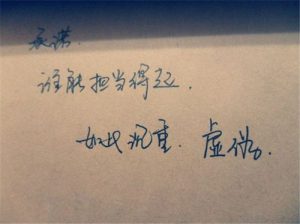 承诺.
谁能担当得起.
如此沉重.虚伪.